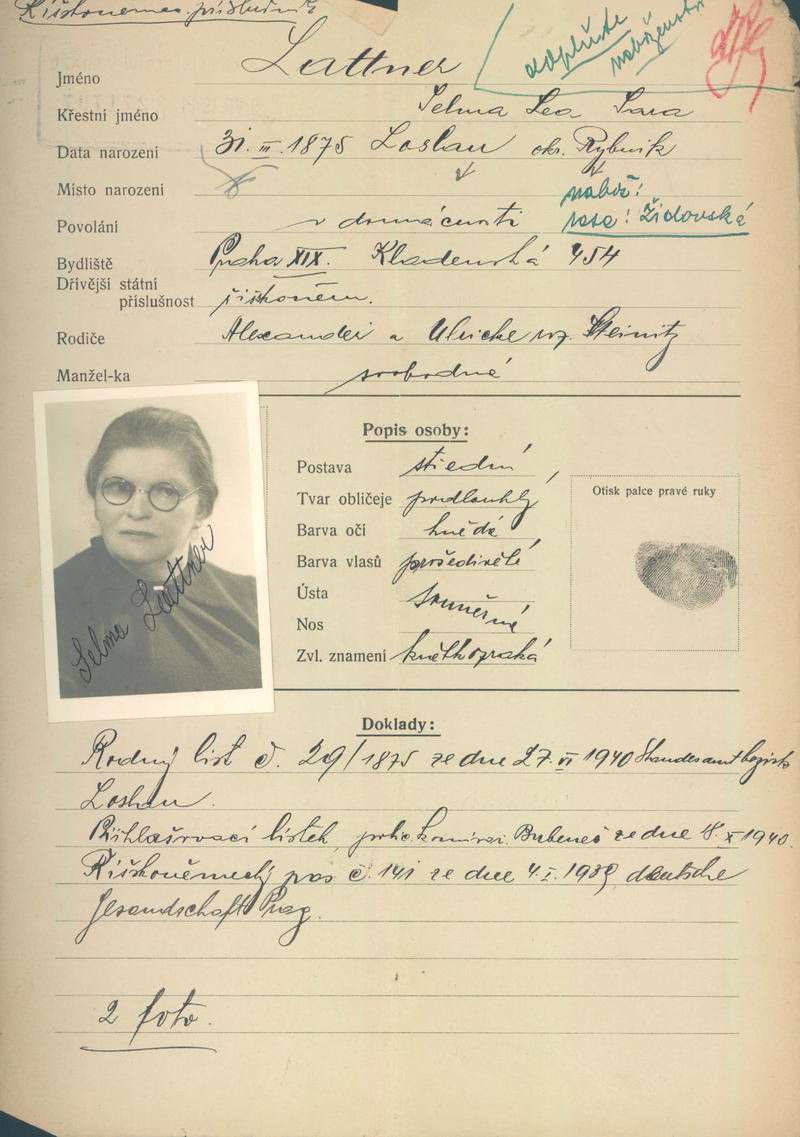 Říškoněmec. příslušník
doplňte
naboženství
Jméno Lattner
Křestní jméno Selma Lea Sara
Data narození 31. III. 1875 Loslau okr. Rybnik
Místo narození nabož:
Povolání v domácnosti rasa: Židovská
Bydliště Praha XIX. Kladenská 454
Dřívější státní
příslušnost říškoněm.
Rodiče Alexander a Ulricke roz. Steinitz
Manžel-ka svobodná
Popis osoby:
Postava střední
Tvar obličeje podlouhlý
Barva očí hnědé
Barva vlasů prošedivělé
Ústa souměrné
Nos
Zvl. znamení krátkozraká
Otisk palce pravé ruky
Selma Lattner
Doklady:
Rodný list č. 29/1875 ze dne 27. VI 1940 Standesamtbezirk
Loslau.
Přihlašovací lístek, polic. komisar. Bubeneč ze dne 18. X 1940.
Říškoněmecký pas č. 141 ze dne 4. I. 1939, deutsche
Gesandschaft Prag.
2 foto.